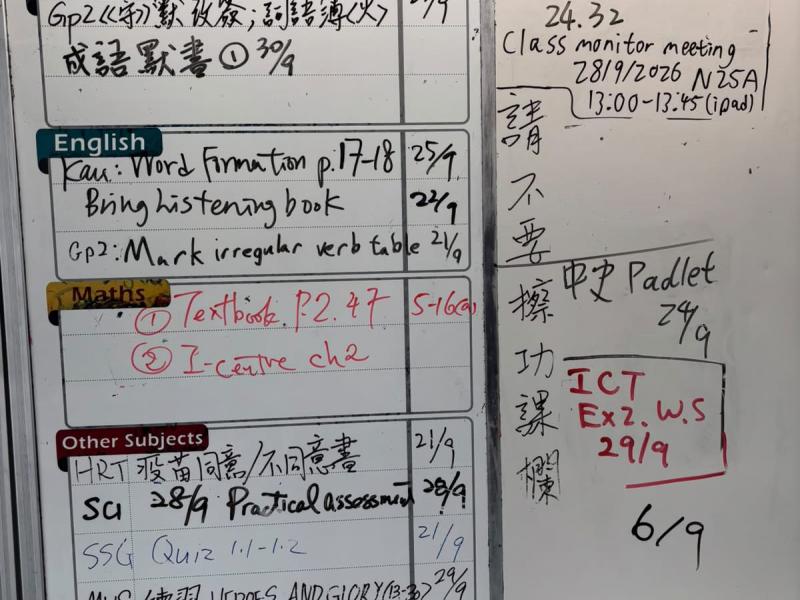 Gp2《守》默改簽;詞語簿(火) /9
成語默書① 30/9
English
Kau: Word Formation p.17-18 25/9
Bring Listening book 22/9
Gp2: Mark irregular verb table 21/9
Maths
① Textbook P.2.47 5-16(a)
② I-centre ch2
Other Subjects
HRT 疫苗同意/不同意書 21/9
SCI 28/9 Practical assessment 28/9
SSG Quiz 1.1-1.2 21/9
練習 HEROES AND GLORY 29/9
24.32
Class monitor meeting
28/9/2026 N25A
13:00-13:45 (ipad)
請不要擦功課欄
中史 Padlet
24/9
ICT
Ex2. W.S
29/9
6/9